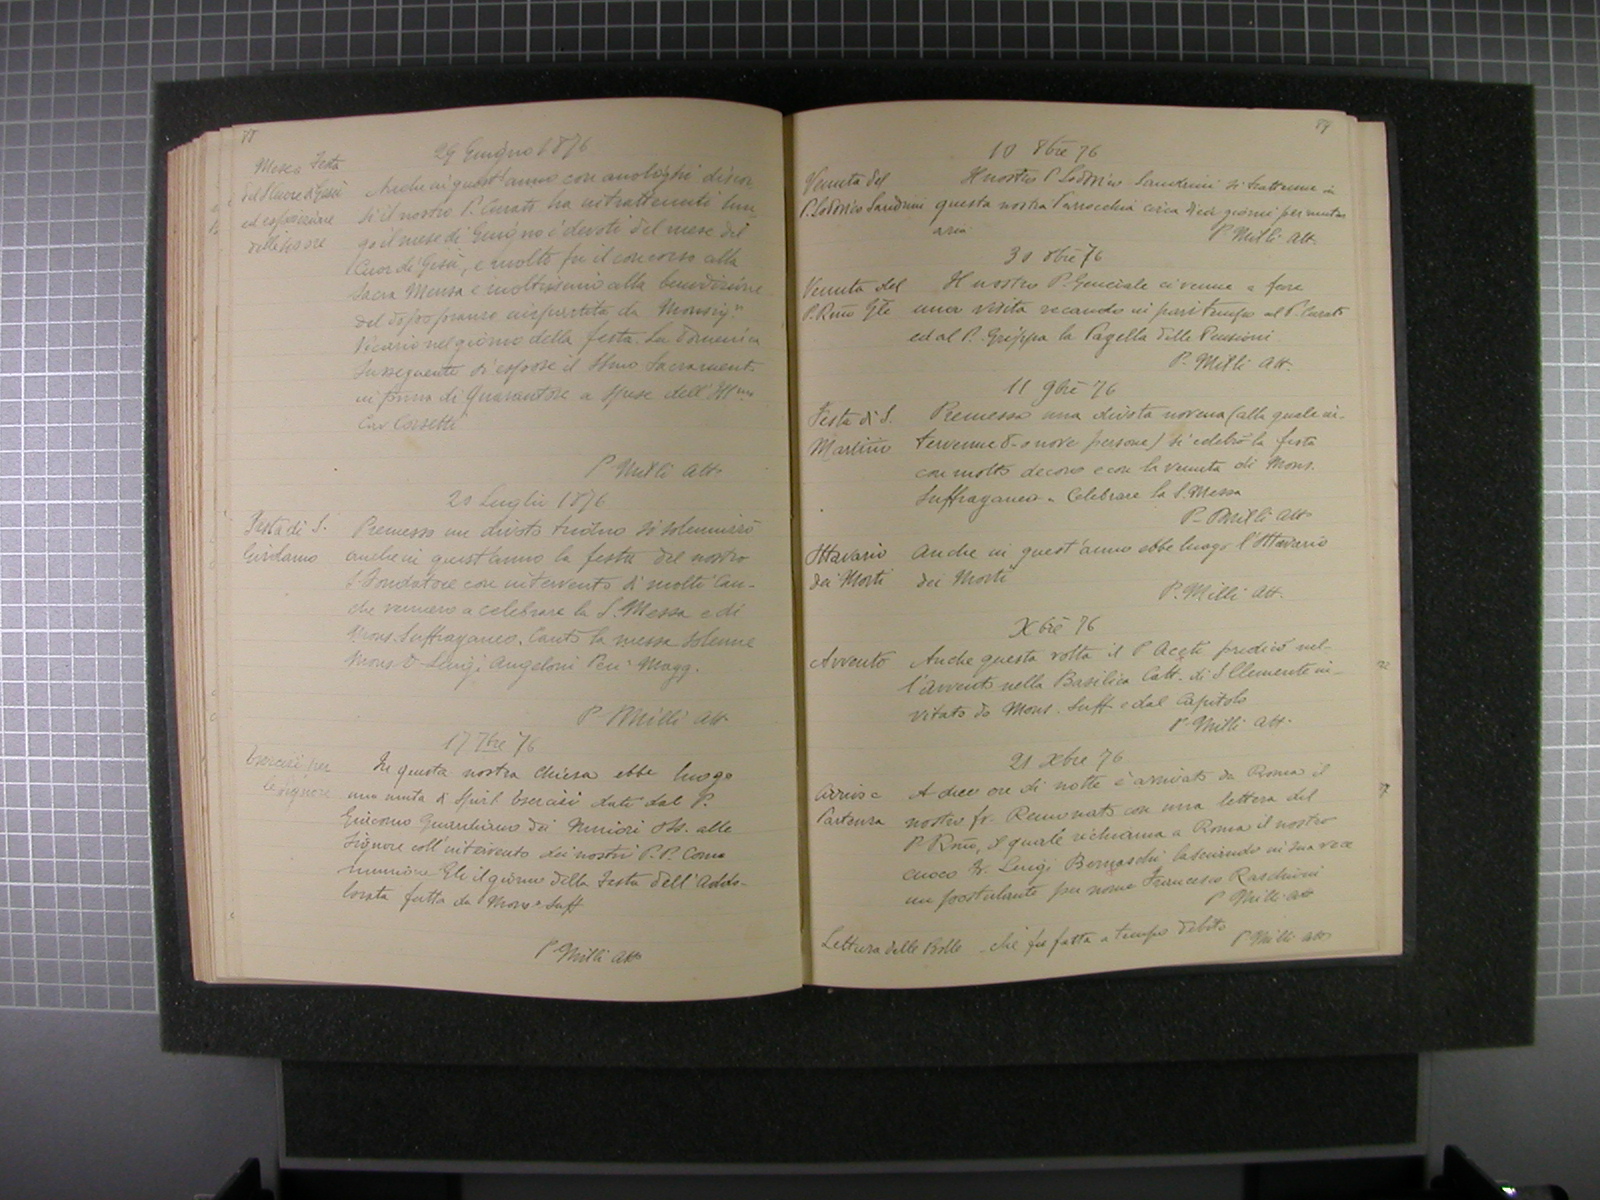 88
29 Giugno 1876
Mese e Festa
del S. Cuore di Gesù
ed esposizione
delle 40 ore
Anche in quest'anno con analoghi discor
si il nostro P. Curato ha intrattenuti lun
go il mese di Giugno i devoti del mese del
Cuor di Gesù, e molto fu il concorso alla
Sacra Mensa e moltissimo alla benedizione
del dopo pranzo impartita da Monsig.r
Vicario nel giorno della festa. La domenica
susseguente si espose il SSmo Sacrament.
in forma di Quarantore a spese dell'Ill.mo
Cav Corsetti
P. Milli att.
20 Luglio 1876
Festa di S.
Girolamo
Premesso un divoto triduo si solennizzò
anche in quest'anno la festa del nostro
S. Fondatore con intervento di molti Can-
che vennero a celebrare la S. Messa e di
Mons. Suffraganeo. Cantò la messa solenne
Mons D. Luigi Angeloni Pen.e Magg.
P. Milli att.
17 7bre 76
Esercizi per
le signore
In questa nostra Chiesa ebbe luogo
una muta di Spirit. Esercizi dati dal P.
Giacomo Guardiano dei Minori Oss. alle
Signore coll'intervento dei nostri P.P. Comu
nione Gle il giorno della Festa dell'Addo-
lorata fatta da Mons.r Suff
P. Milli att.
89
10 8bre 76
Venuta del
P. Lodovico Sandrini
Il nostro P. Lodovico Sandrini si trattenne in
questa nostra Parrocchia circa dieci giorni per mutar
aria
P. Milli att.
30 8bre 76
Venuta del
P. Rmo Gle
Il nostro P. Generale ci venne a fare
una visita recando in pari tempo al P. Curato
ed al P. Grippa la Pagella delle Pensioni
P. Milli att.
11 9bre 76
Festa di S.
Martino
Premessa una divota novena (alla quale in-
tervenne 8 o nove persone) si celebrò la festa
con molto decoro e con la venuta di Mons.
Suffraganeo a Celebrare la S. Messa
P. Milli att.
Ottavario
dei Morti
Anche in quest'anno ebbe luogo l'Ottavario
dei Morti
P. Milli att.
Xbre 76
Avvento
Anche questa volta il P. Aceti predicò nel-
l'avvento nella Basilica Catt. di S Clemente in-
vitato da Mons. Suff. e dal Capitolo
P. Milli att.
21 Xbre 76
Arrivo e
Partenza
A dieci ore di notte è arrivato da Roma il
nostro fr. con una lettera del
P. Rmo, il quale richiama a Roma il nostro
cuoco fr. Luigi Bernaschi lasciando in sua vece
un postulante per nome Francesco
P. Milli att
Lettura delle Bolle - che fu fatta a tempo debito
P. Milli att.